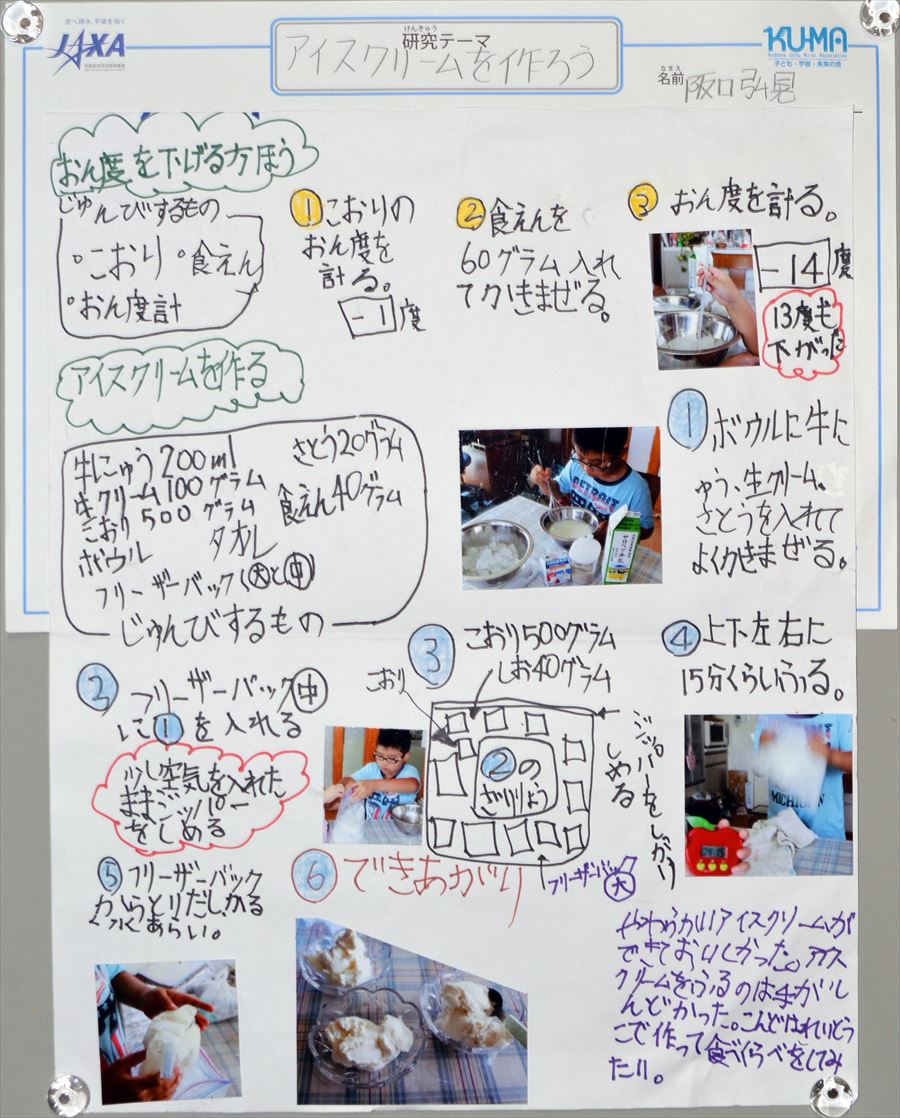 空へ挑み、宇宙を拓く
JAXA
けんきゅう
研究テーマ
アイスクリームを作ろう
KUMA
子ども・宇宙・未来の会
なまえ
名前
阪口弘晃
おん度を下げる方ほう
じゅんびするもの
・こおり ・食えん
・おん度計
①こおりの
おん度を
計る。
-1度
②食えんを
60グラム入れ
てかきまぜる。
③おん度を計る。
-14度
13度も
下がった
アイスクリームを作る
牛にゅう200ml
さとう20グラム
生クリーム100グラム
食えん40グラム
こおり500グラム
ボウル タオル
フリーザーバック(大と中)
じゅんびするもの
①ボウルに牛に
ゅう、生クリーム、
さとうを入れて
よくかきまぜる。
②フリーザーバック中
に①を入れる
少し空気を入れた
ままジッパー
をしめる
③こおり500グラム
しお40グラム
こおり
②の
ざいりょう
ジッパーをしっかり
しめる
フリーザーバック大
④上下左右に
15分くらいふる。
⑤フリーザーバック
からとりだし、かる
くあらい。
⑥できあがり
やわらかいアイスクリームが
できておいしかった。アイス
クリームをふるのは手がし
んどかった。こんどはれいとう
こで作って食べくらべをしてみ
たい。